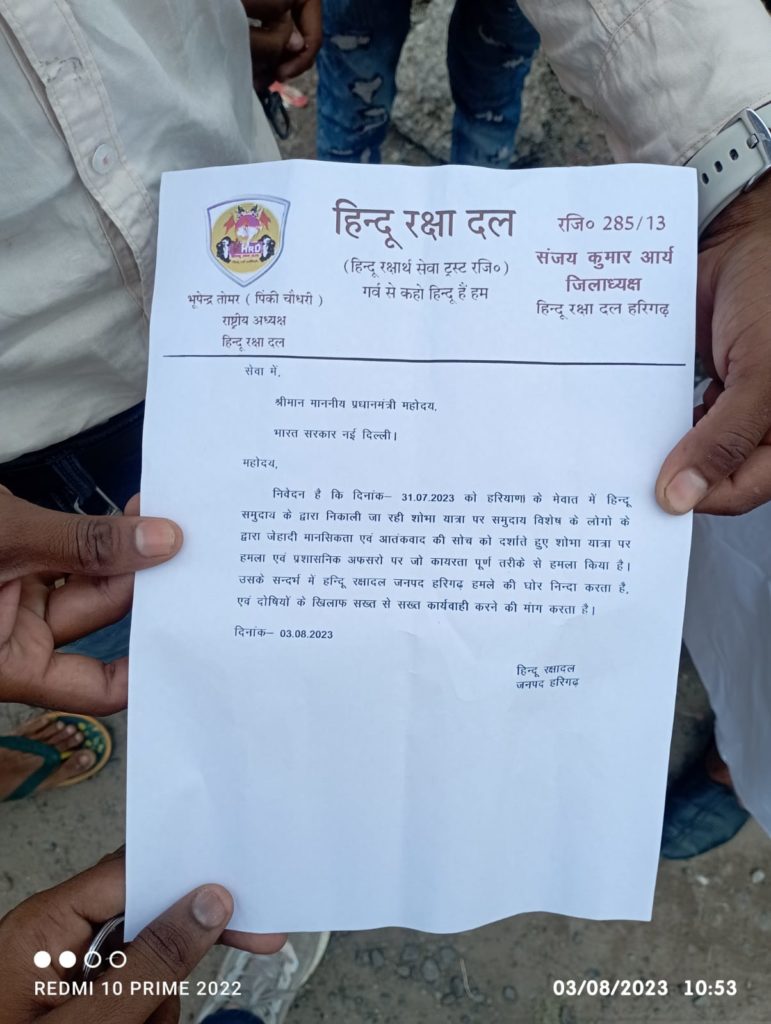 HRD
हिन्दू रक्षा दल
(हिन्दू रक्षार्थ सेवा ट्रस्ट रजि०)
गर्व से कहो हिन्दू हैं हम
रजि० 285/13
संजय कुमार आर्य
जिलाध्यक्ष
हिन्दू रक्षा दल हरिगढ़
भूपेन्द्र तोमर ( पिंकी चौधरी )
राष्ट्रीय अध्यक्ष
हिन्दू रक्षा दल
सेवा में,
श्रीमान माननीय प्रधानमंत्री महोदय,
भारत सरकार नई दिल्ली।
महोदय,
निवेदन है कि दिनांक– 31.07.2023 को हरियाणां के मेवात में हिन्दू
समुदाय के द्वारा निकाली जा रही शोभा यात्रा पर समुदाय विशेष के लोगो के
द्वारा जेहादी मानसिकता एवं आतंकवाद की सोच को दर्शाते हुए शोभा यात्रा पर
हमला एवं प्रशासनिक अफसरो पर जो कायरता पूर्ण तरीके से हमला किया है।
उसके सन्दर्भ में हन्दिू रक्षादल जनपद हरिगढ़ हमले की घोर निन्दा करता है,
एवं दोषियों के खिलाफ सख्त से सख्त कार्यवाही करने की मांग करता है।
दिनांक– 03.08.2023
हिन्दू रक्षादल
जनपद हरिगढ़
REDMI 10 PRIME 2022
03/08/2023 10:53